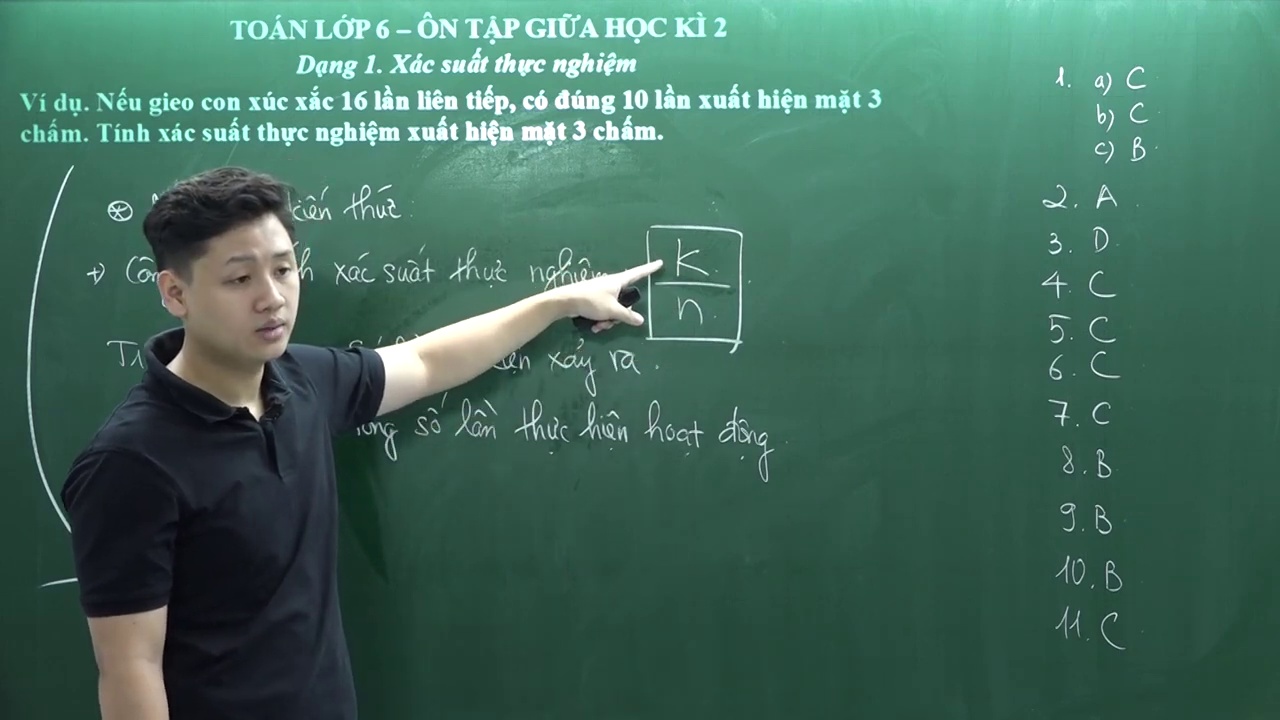 TOÁN LỚP 6 – ÔN TẬP GIỮA HỌC KÌ 2
Dạng 1. Xác suất thực nghiệm
Ví dụ. Nếu gieo con xúc xắc 16 lần liên tiếp, có đúng 10 lần xuất hiện mặt 3
chấm. Tính xác suất thực nghiệm xuất hiện mặt 3 chấm.
kiến thức:
+ xác suất thực nghiệm
k
n
xảy ra.
số lần thực hiện hoạt động.
1. a) C
b) C
c) B
2. A
3. D
4. C
5. C
6. C
7. C
8. B
9. B
10. B
11. C